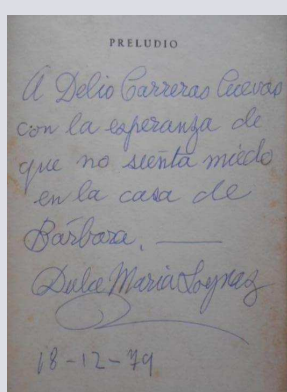 PRELUDIO
A Delio Carreras Cuevas
con la esperanza de
que no sienta miedo
en la casa de
Bárbara.
Dulce María Loynaz
18-12-79